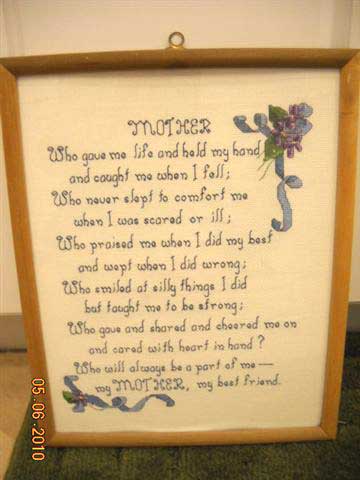 MOTHER
Who gave me life and held my hand
and caught me when I fell;
Who never slept to comfort me
when I was scared or ill;
Who praised me when I did my best
and wept when I did wrong;
Who smiled at silly things I did
but taught me to be strong;
Who gave and shared and cheered me on
and cared with heart in hand?
Who will always be a part of me —
my MOTHER, my best friend.
05.06.2010